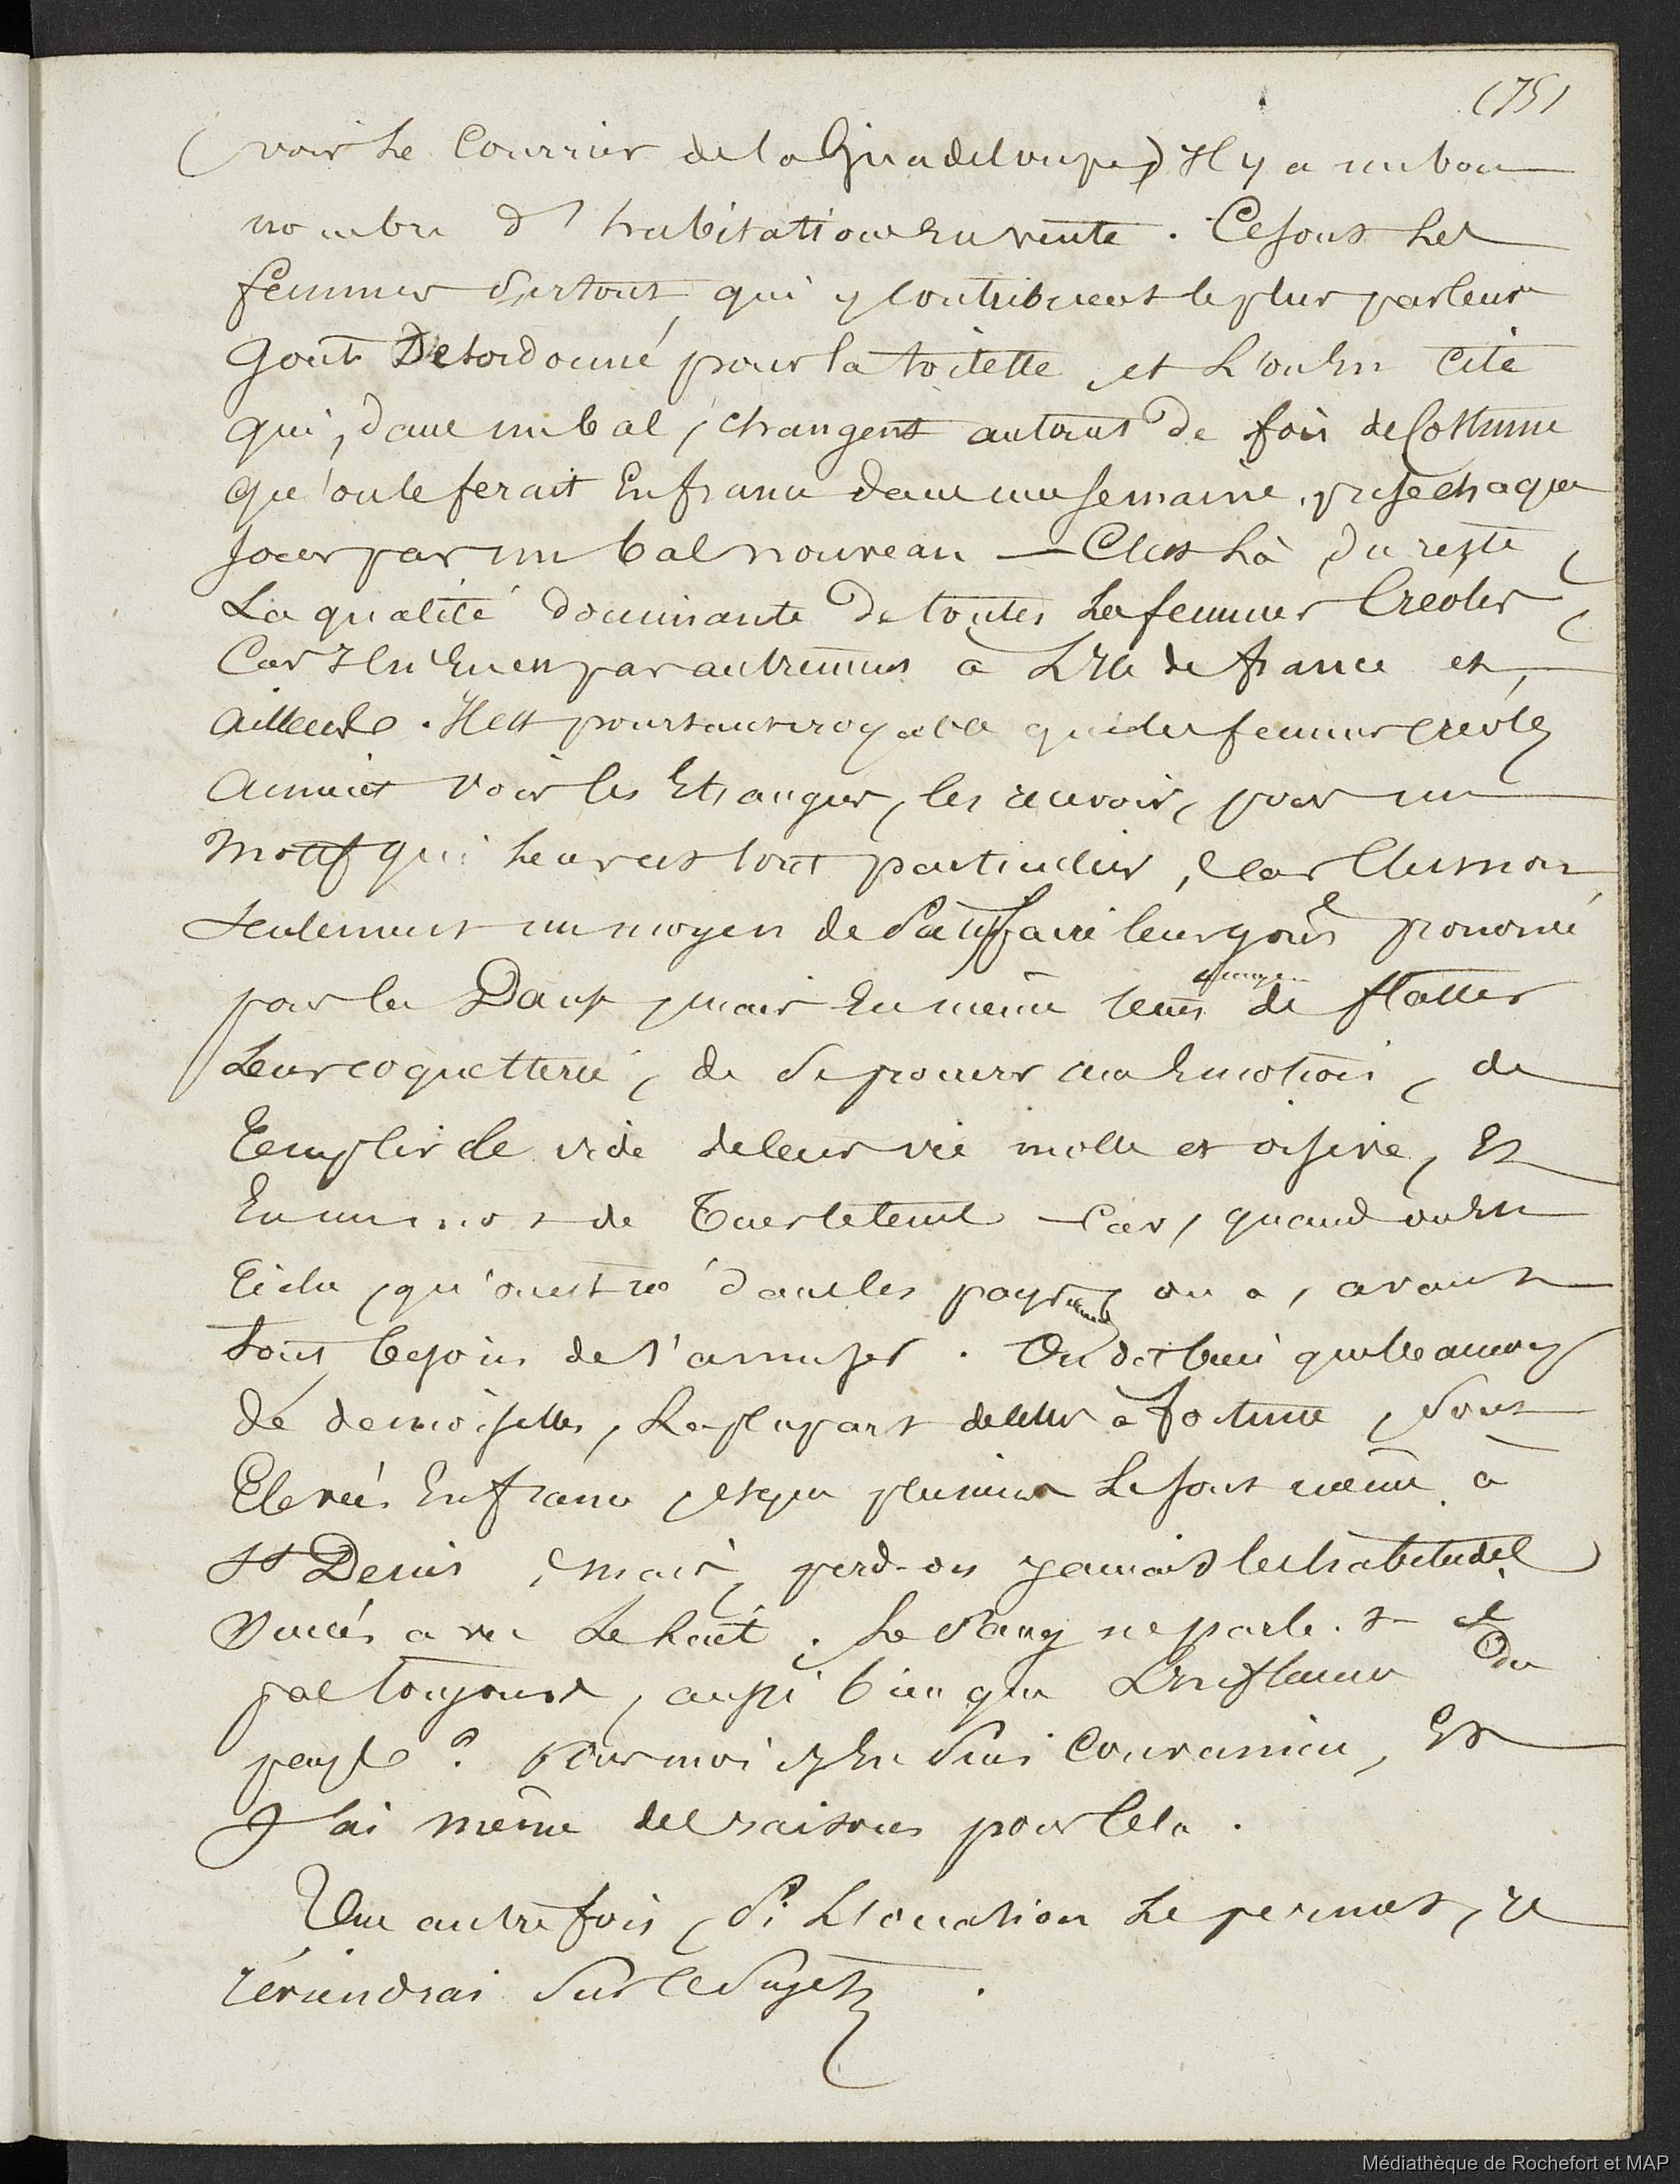 (75)
(voir le Courrier de la Guadeloupe) Il y a un bon
nombre d'habitations en vente. Ce sont les
femmes surtout qui y contribuent le plus par leur
gout desordonné pour la toilette, et l'on en cite
qui, dans un bal, changent autant de fois de costume
qu'on le ferait En france dans une semaine, prise chaque
jour par un bal nouveau — C'est là du reste
La qualité dominante de toutes les femmes Créoles,
Car Il n'En est pas autrement à L'Ile de france et
ailleurs. Il est pourtant croyable que des femmes créoles
aiment voir les Etrangers, les recevoir, pour un
motif qui leur est tout particulier, Car C'est non
seulement un moyen de Satisfaire leur goût prononcé
pour la Danse, mais En même tems de flatter
Leur coquetterie, de se procurer des Emotions, de
remplir le vide de leur vie molle et oisive, Et
En un mot de Tuer le tems — Car, quand on En
Est là, qu'on est né dans les pays chauds on a, avant
tout besoin de s'amuser. On dit bien que beaucoup
de demoiselles, La plupart d'elles à fortune, sont
Elevées En france, et que plusieurs Le sont même à
St Denis, mais, perd-on jamais les habitudes
sucées avec Le lait. Le Sang ne parle-t-il
pas toujours, aussi bien que L'Influence du
pays? Pour moi j'En suis Convaincu, Et
J'ai même des raisons pour Cela.
Une autre fois, Si L'occasion Le permet, je
reviendrai Sur Ce Sujet.
Médiathèque de Rochefort et MAP